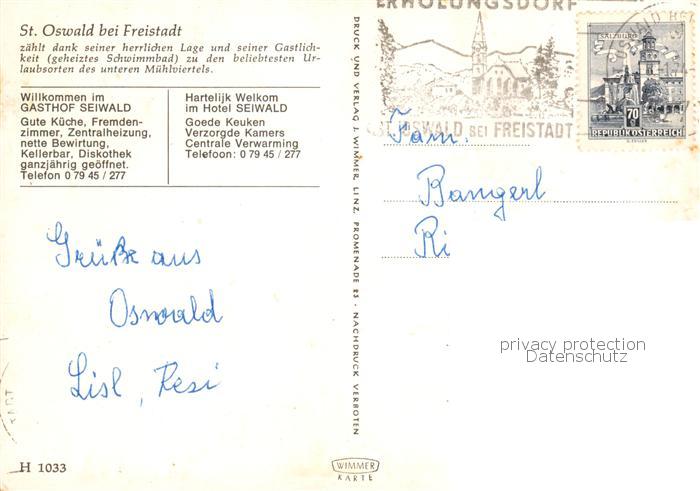 St. Oswald bei Freistadt
zählt dank seiner herrlichen Lage und seiner Gastlich-
keit (geheiztes Schwimmbad) zu den beliebtesten Ur-
laubsorten des unteren Mühlviertels.
Willkommen im
GASTHOF SEIWALD
Gute Küche, Fremden-
zimmer, Zentralheizung,
nette Bewirtung,
Kellerbar, Diskothek
ganzjährig geöffnet.
Telefon 0 79 45 / 277
Hartelijk Welkom
im Hotel SEIWALD
Goede Keuken
Verzorgde Kamers
Centrale Verwarming
Telefoon: 0 79 45 / 277
Grüße aus
Oswald
Lisl, Resi
H 1033
DRUCK UND VERLAG J. WIMMER, LINZ, PROMENADE 23 · NACHDRUCK VERBOTEN
WIMMER
KARTE
ERHOLUNGSDORF
ST. OSWALD BEI FREISTADT
SALZBURG
70
REPUBLIK ÖSTERREICH
Fam.
Bamgerl
Ri
privacy protection
Datenschutz